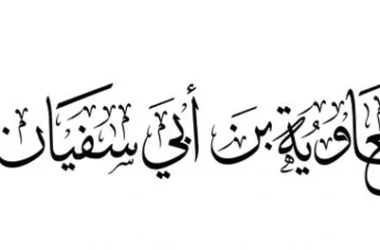 عَاويَة بنَ أبيَ سَفيَان